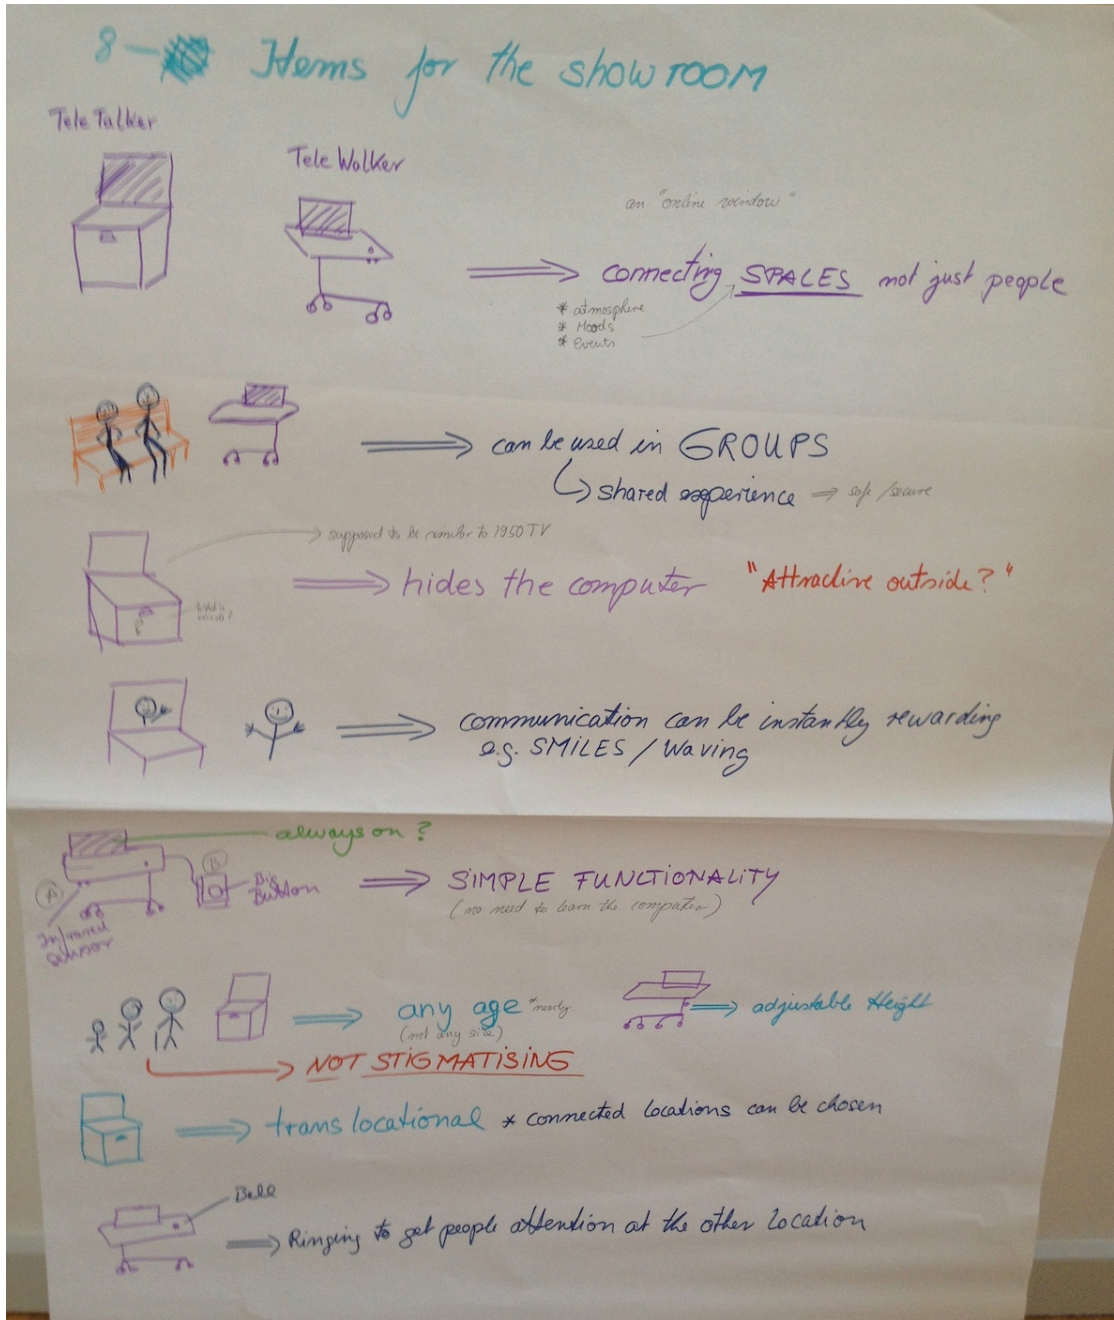 8 — Items for the showroom
Tele Talker
Tele Walker
an "online window"
connecting SPACES not just people
* atmosphere
* Moods
* Events
can be used in GROUPS
shared experience ⇒ safe/secure
supposed to be similar to 1950 TV
hides the computer "Attractive outside?"
communication can be instantly rewarding
e.g. SMILES / Waving
always on?
A
B
Big
Button
Infrared
sensor
SIMPLE FUNCTIONALITY
(no need to learn the computer)
any age *nearby
(not any size)
adjustable Height
NOT STIGMATISING
trans locational * connected locations can be chosen
Bell
Ringing to get people attention at the other location